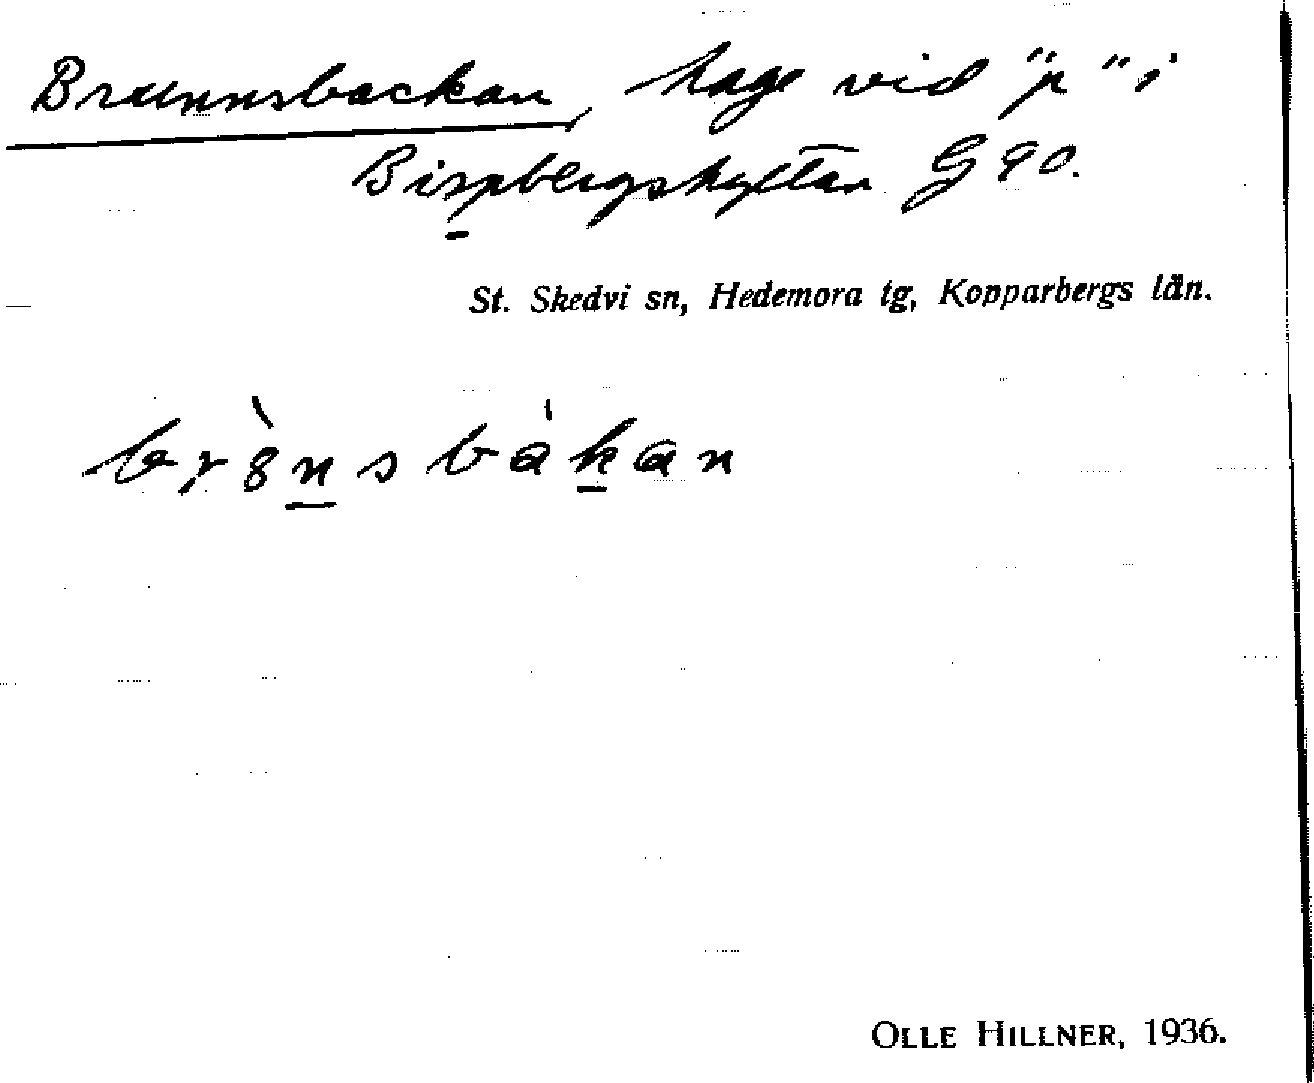 Brunnsbackan, hage vid "p" i
Bispbergshyttan G 90.
St. Skedvi sn, Hedemora tg, Kopparbergs län.
br8̀nsbàkan
OLLE HILLNER, 1936.